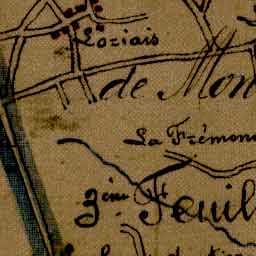 Loriais
de Mon
La Frémon
3ème Feuil